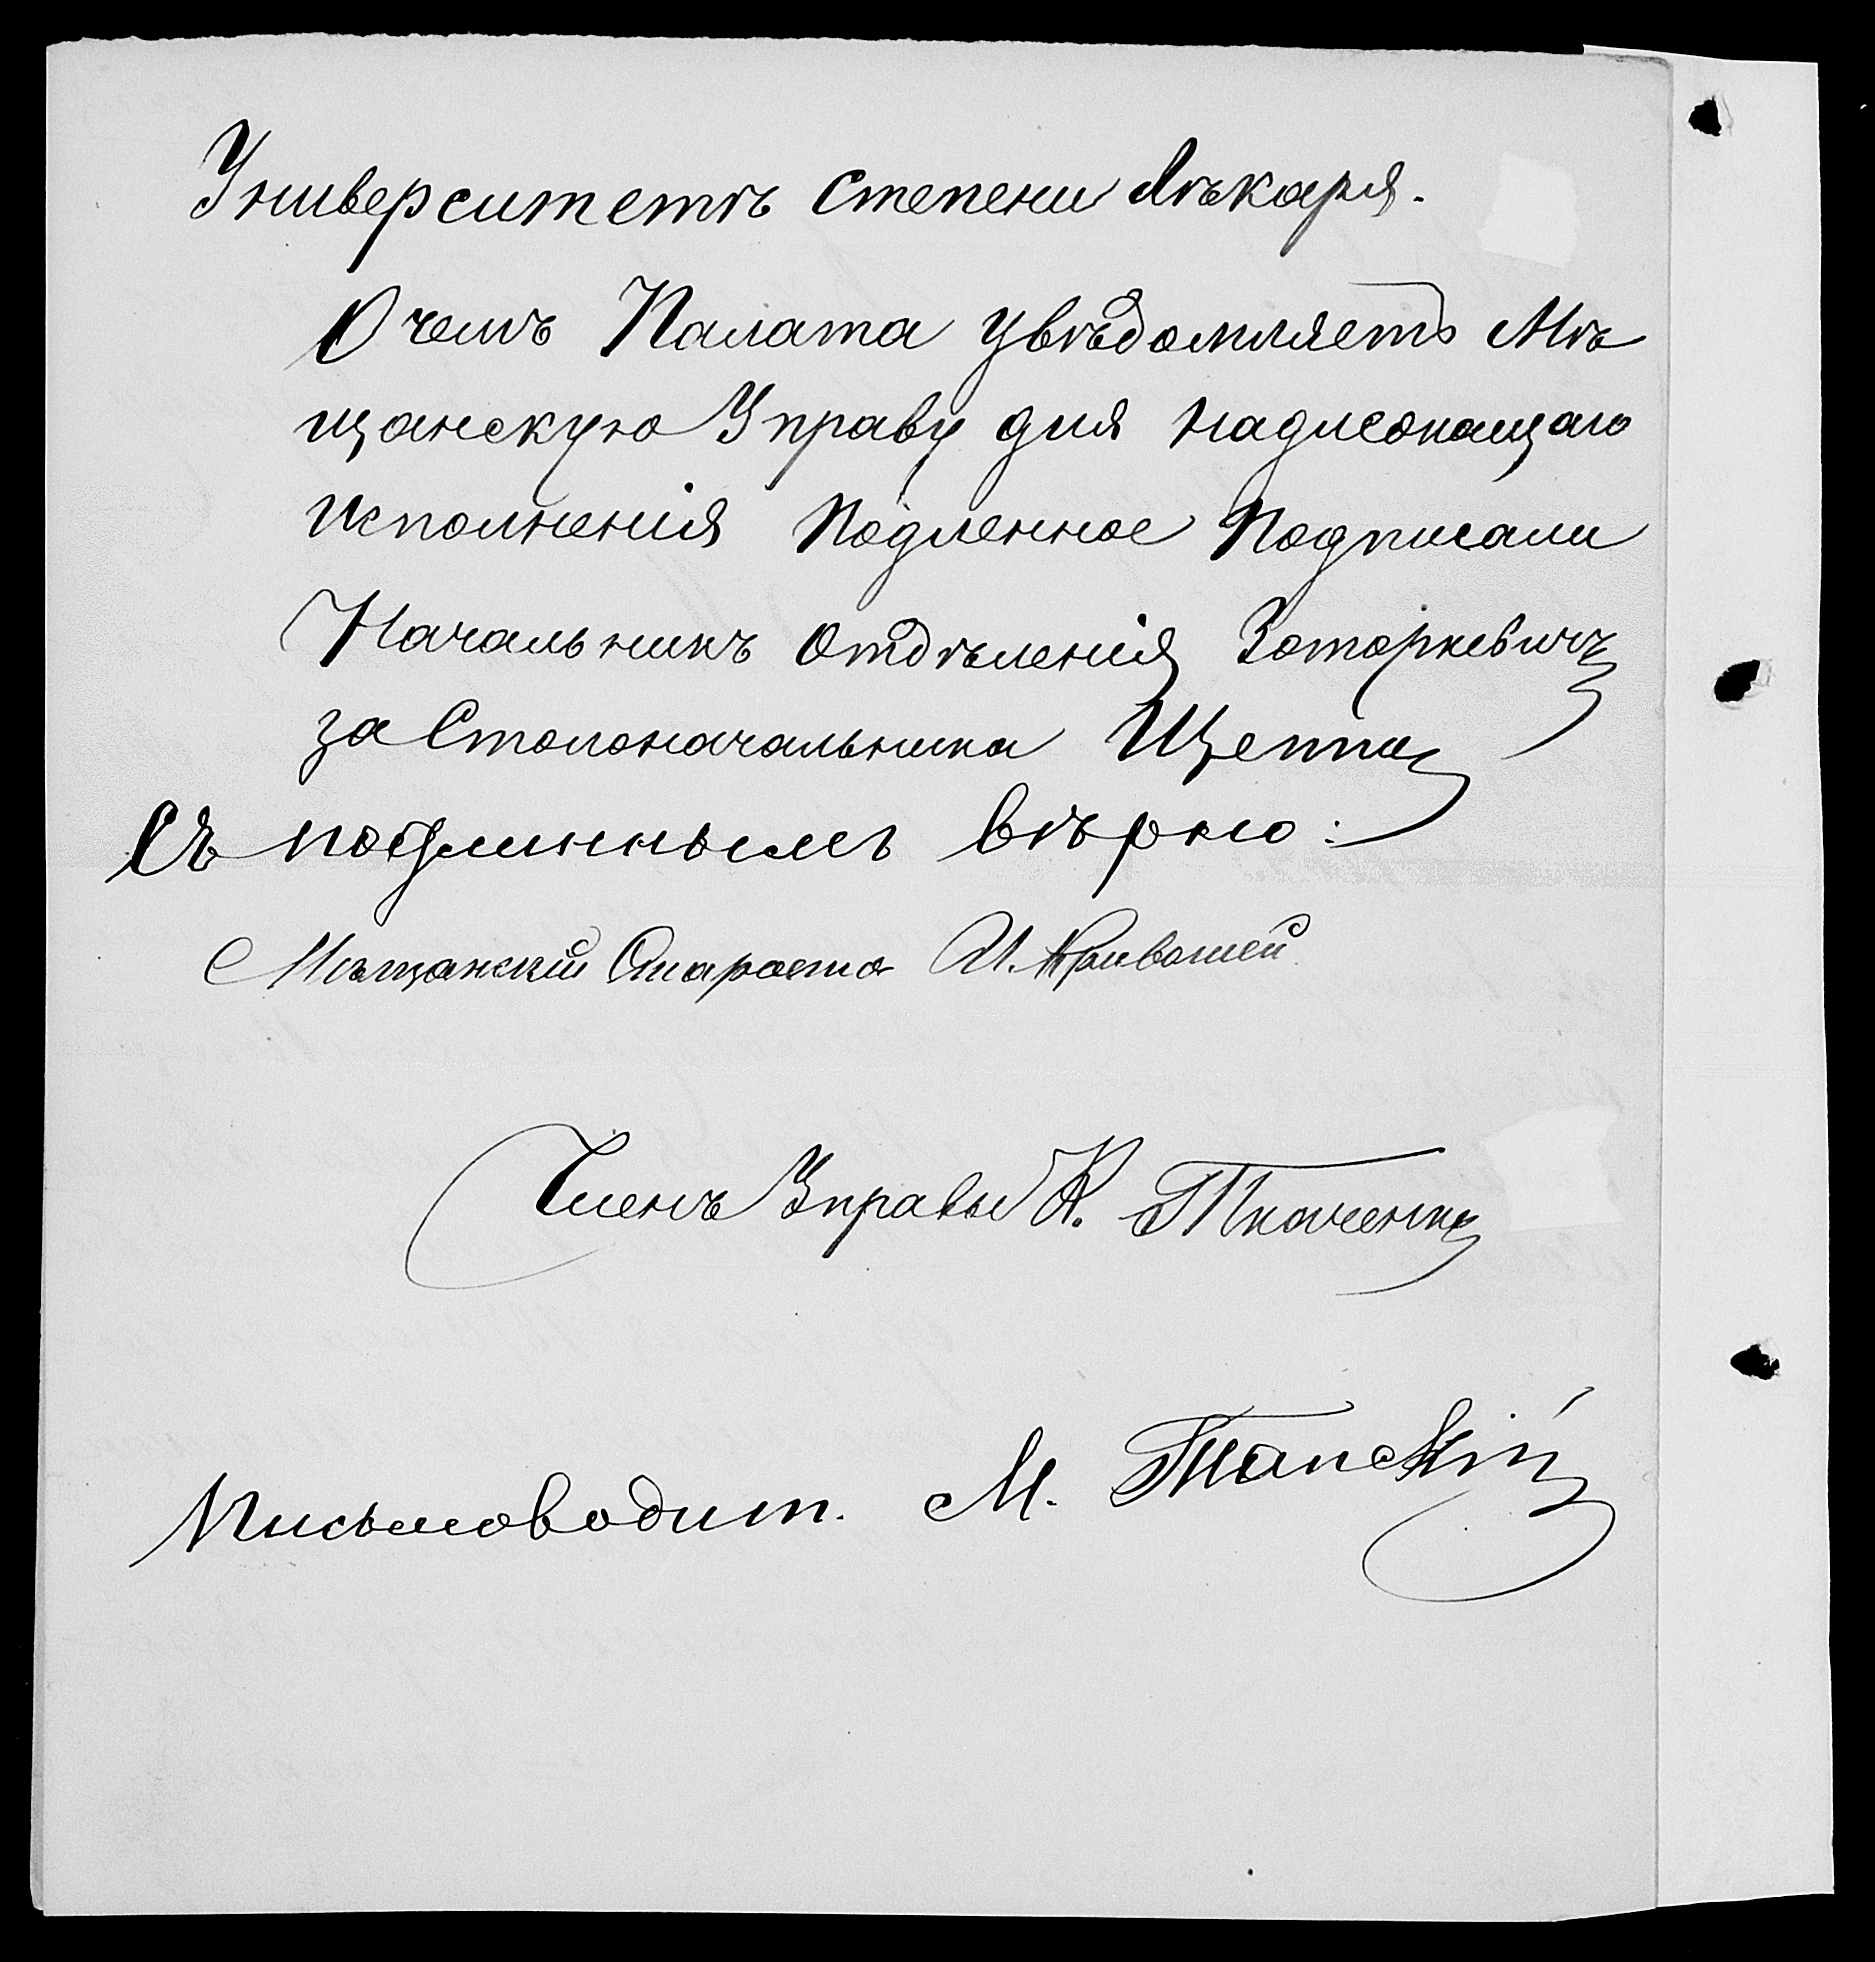 Университетѣ степени Лѣкаря.
О чемъ Палата увѣдомляетъ Мѣ
щанскую Управу для надлежащаго
исполненія Подленное Подписали
Начальникъ Отдѣленія Заторкевичъ
за Столоначальника Щеппа
Съ подлиннымъ вѣрно:
Мѣщанскій Староста И. Кривошей
Членъ Управы К. Ткаченко
Письмоводит. М. Танскій